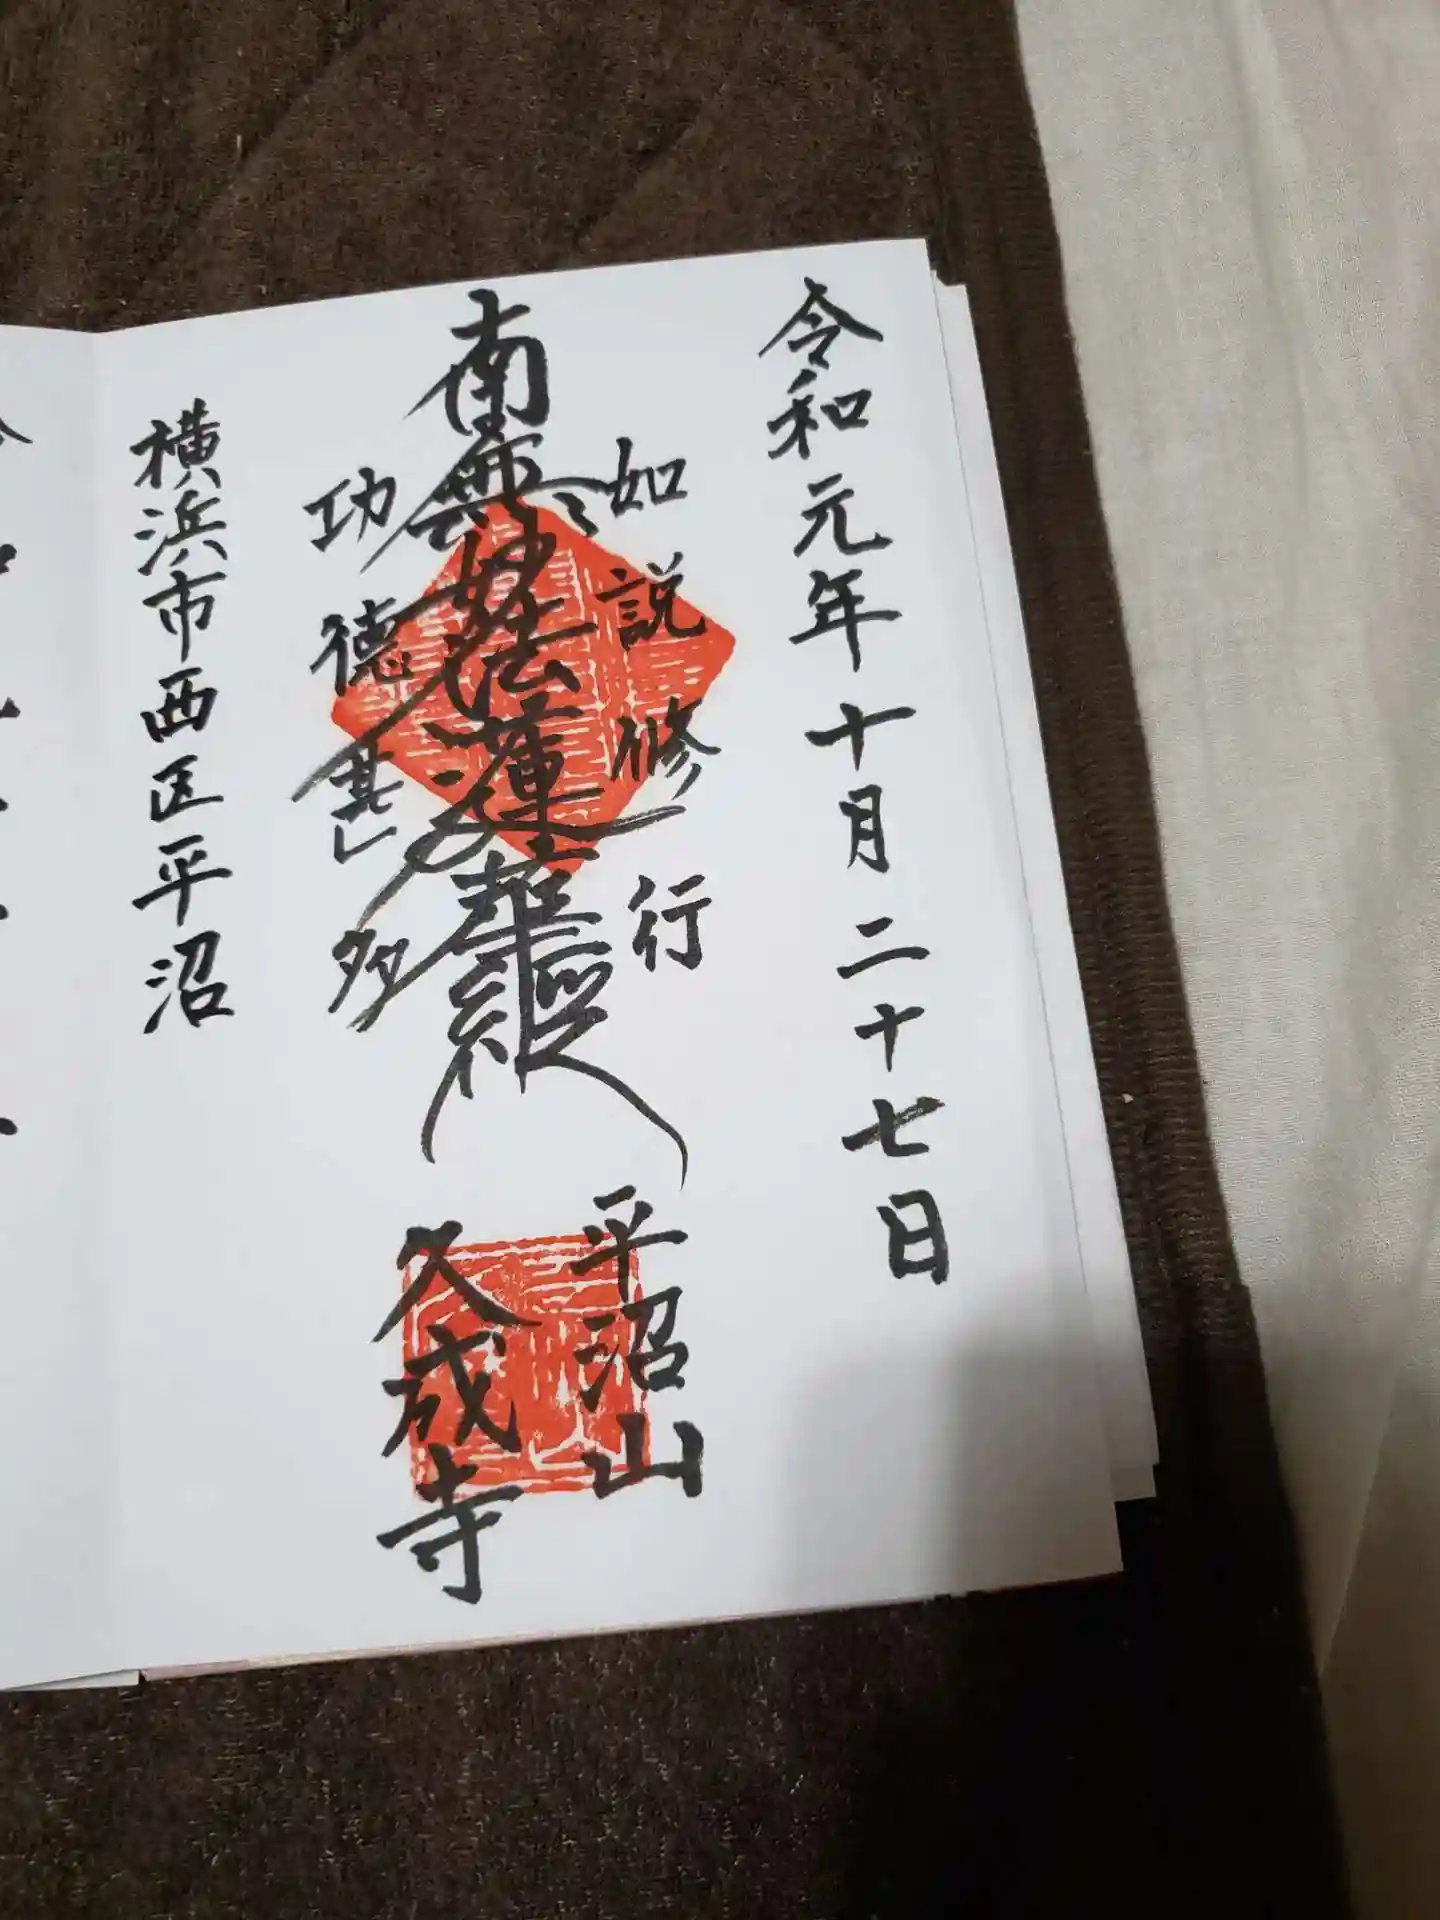 令和元年十月二十七日
如説修行
南無妙法蓮華経
功徳甚多
平沼山
久成寺
横浜市西区平沼